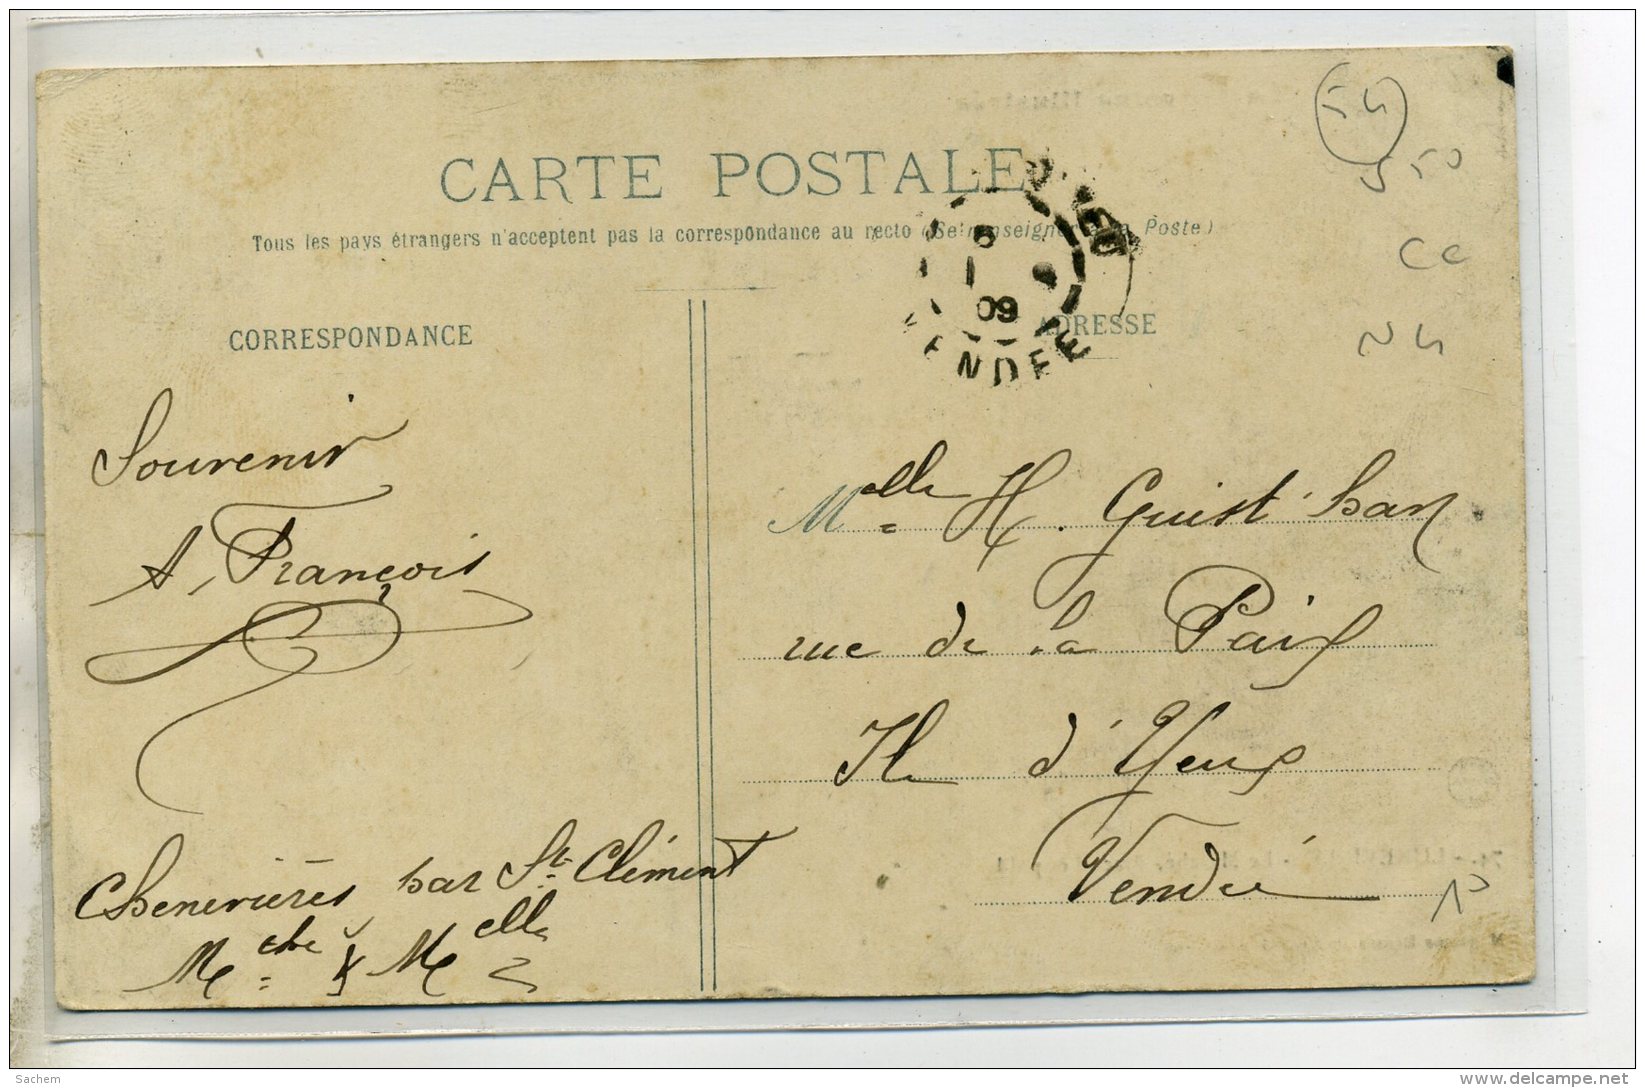 54
550
CARTE POSTALE
Tous les pays étrangers n'acceptent pas la correspondance au recto (Se renseigner à la Poste)
5
09
ENDEE
Cc
N4
CORRESPONDANCE
ADRESSE
Souvenir
A. François
Chenevières par St Clément
Mthe & Melle
Melle H. Guist'hau
rue de la Paix
Ile d'Yeux
Vendée
10
Sachem
delcampe.net